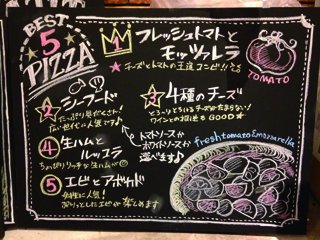 BEST
5
PIZZA
1
フレッシュトマトと
モッツァレラ
★チーズとトマトの王道コンビ!!
TOMATO
2 シーフード
たっぷり
人気です♪
3 4種のチーズ
とろ〜りとろけるチーズがたまらない!
ワインとの相性も GOOD★
4 生ハムと
ルッコラ
トマトソースか
ホワイトソースか
選べます♪
fresh tomato & mozzarella
5 エビとアボカド
女性に人気!
楽しめます